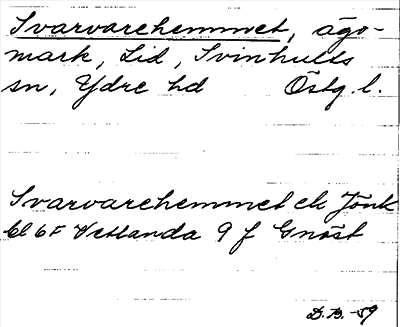 Svarvarehemmet, ägo-
mark, Lid, Svinhults
sn, Ydre hd Östg. l.
Svarvarehemmet ek Jönk
bl 6F Vetlanda 9 f Gnöst
D.B. -59